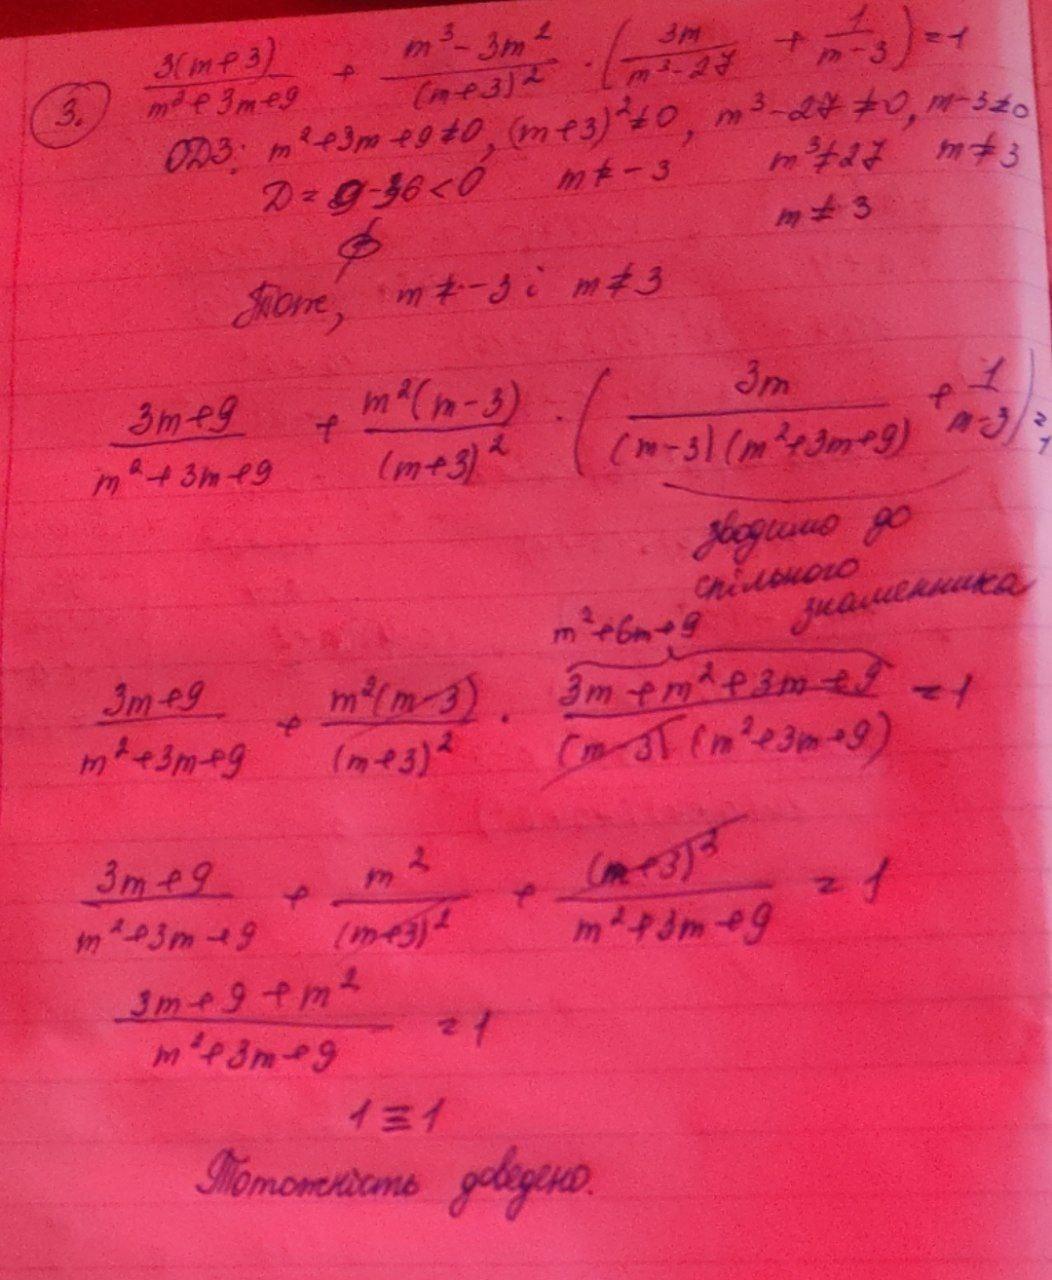 3. 3(m+3)/(m²+3m+9) + (m³-3m²)/(m+3)² · (3m/(m³-27) + 1/(m-3)) = 1
ОДЗ: m²+3m+9≠0, (m+3)²≠0, m³-27≠0, m-3≠0
D = 9-36<0 m≠-3 m³≠27 m≠3
∅ m≠3
Тоже, m≠-3 і m≠3
(3m+9)/(m²+3m+9) + m²(m-3)/(m+3)² · (3m/((m-3)(m²+3m+9)) + 1/(m-3)) = 1
зводимо до
спільного
знаменника
m²+6m+9
(3m+9)/(m²+3m+9) + m²(m-3)/(m+3)² · (3m+m²+3m+9)/((m-3)(m²+3m+9)) = 1
(3m+9)/(m²+3m+9) + m²/(m+3)² + (m+3)²/(m²+3m+9) = 1
(3m+9+m²)/(m²+3m+9) = 1
1≡1
Тотожність доведено.